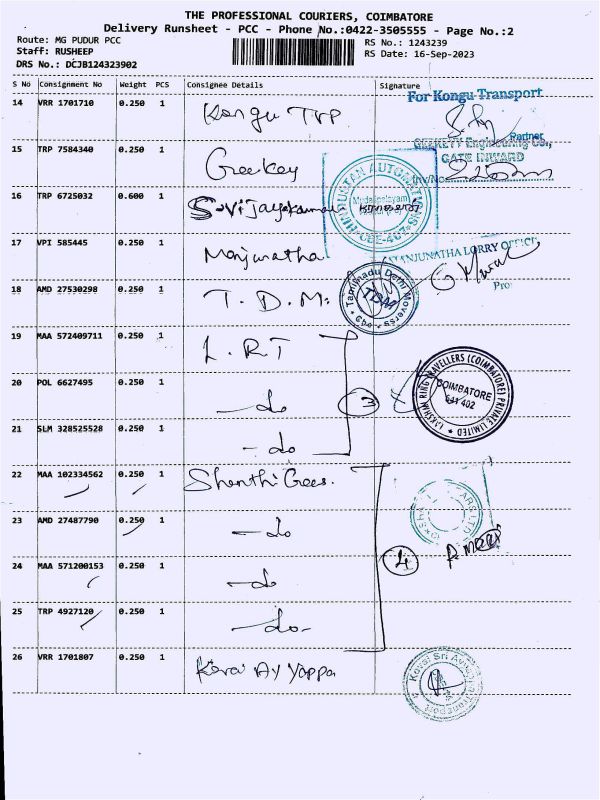 THE PROFESSIONAL COURIERS, COIMBATORE
Delivery Runsheet - PCC - Phone No.:0422-3505555 - Page No.:2
Route: MG PUDUR PCC
RS No.: 1243239
Staff: RUSHEEP
RS Date: 16-Sep-2023
DRS No.: DCJB124323902
S No Consignment No Weight PCS Consignee Details Signature
14 VRR 1701710 0.250 1 Kongu TVP
For Kongu Transport
Partner
15 TRP 7584340 0.250 1 Geekey
GEEKEYY Engineering Co.,
GATE INWARD
16 TRP 6725032 0.600 1 S. Vijayakumar
17 VPI 585445 0.250 1 Manjunatha
MANJUNATHA LORRY OFFICE
Pro
18 AMD 27530298 0.250 1 T. D. M.
Tamilnadu Delhi Moverss
TDM
19 MAA 572409711 0.250 1 L. R. T
20 POL 6627495 0.250 1 - do
3
LAKSHMI RING TRAVELLERS (COIMBATORE) PRIVATE LIMITED
COIMBATORE
641 402
21 SLM 328525528 0.250 1 - do
22 MAA 102334562 0.250 1 Shanthi Gees.
23 AMD 27487790 0.250 1 - do
24 MAA 571200153 0.250 1 - do
4
25 TRP 4927120 0.250 1 - do-
26 VRR 1701807 0.250 1 Kovai Ayyappa